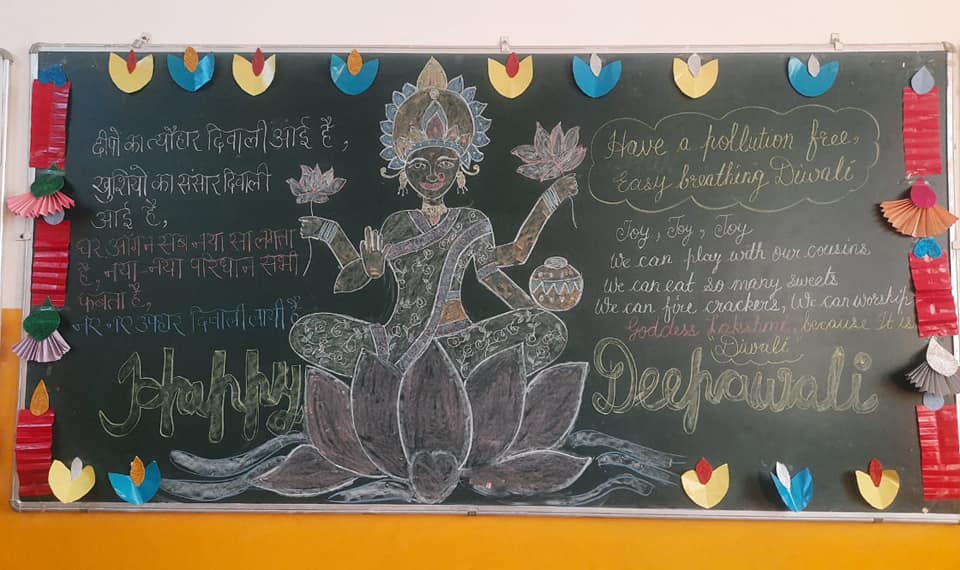 दीपो का त्यौहार दिवाली आई है,
खुशियो का संसार दिवाली
आई है,
घर आंगन सब नया सा लगता
है, नया-नया परिधान सभी
फबता है,
नए नए उपहार दिवाली लायी है
Happy
Have a pollution free,
Easy breathing Diwali
Joy, Joy, Joy
We can play with our cousins
We can eat so many sweets
We can fire crackers, We can worship
Goddess Lakshmi, because It is
"Diwali"
Deepawali